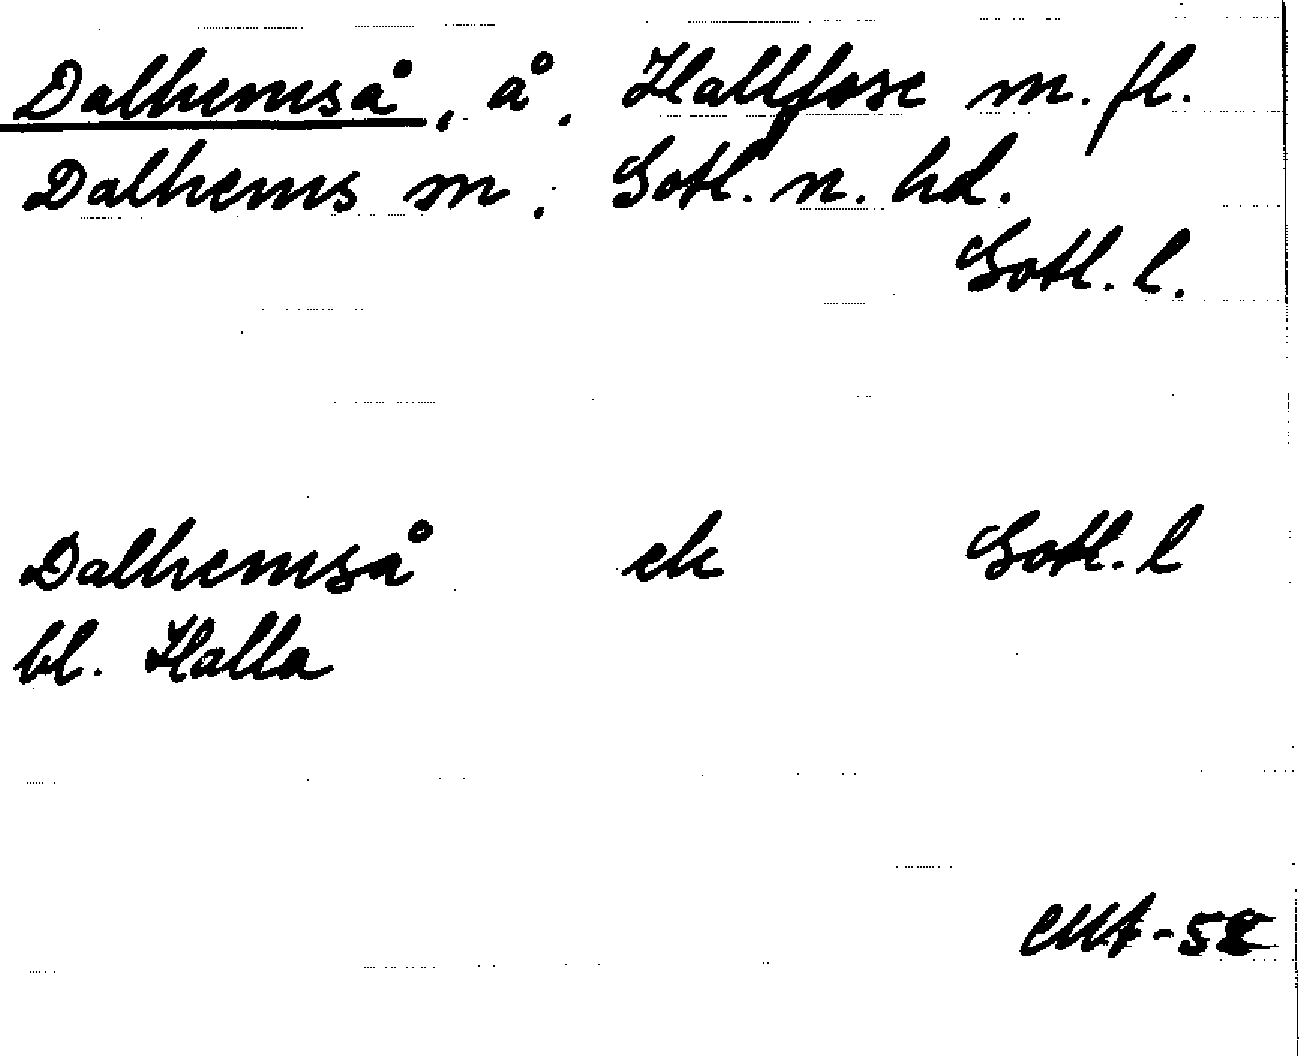 Dalhemså, å. Hallfose m. fl.
Dalhems m. Gotl. n. hd.
Gotl. l.
Dalhemså ek Gotl. l
bl. Halla